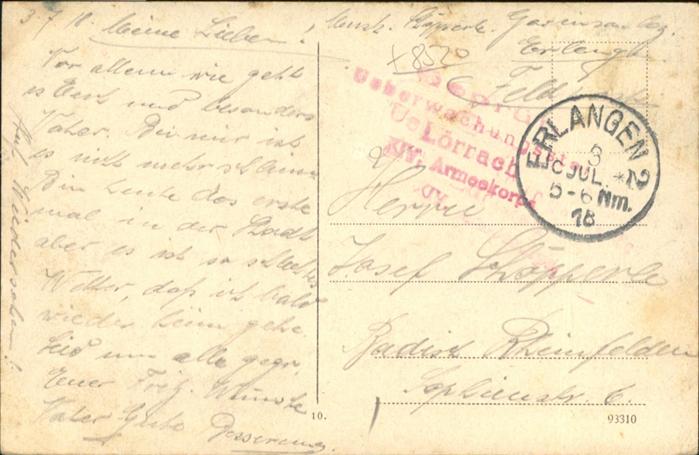 3.7.18. Meine Lieben!
Vor allem wie geht
es Euch und besonders
Vater. Bei mir ist
es nicht mehr schlimm
Bin heute das erste
mal in der Stadt
aber es ist so schlechtes
Wetter, daß ich bald
wieder heim gehe.
Seid nun alle gegr.
Euer Fritz. Wünsche
Vater Gute Besserung
Auf Wiedersehen!
Musk. Stöpperle.
Erlangen
Feldpost
+8520
Geprüft
Ueberwachungsstelle
Lörrach
XIV. Armeekorps
ERLANGEN 2
3 JUL.
5-6 Nm.
18
Herrn
Josef Stöpperle
Badisch Rheinfelden
Sophienstr. 6.
10.
93310